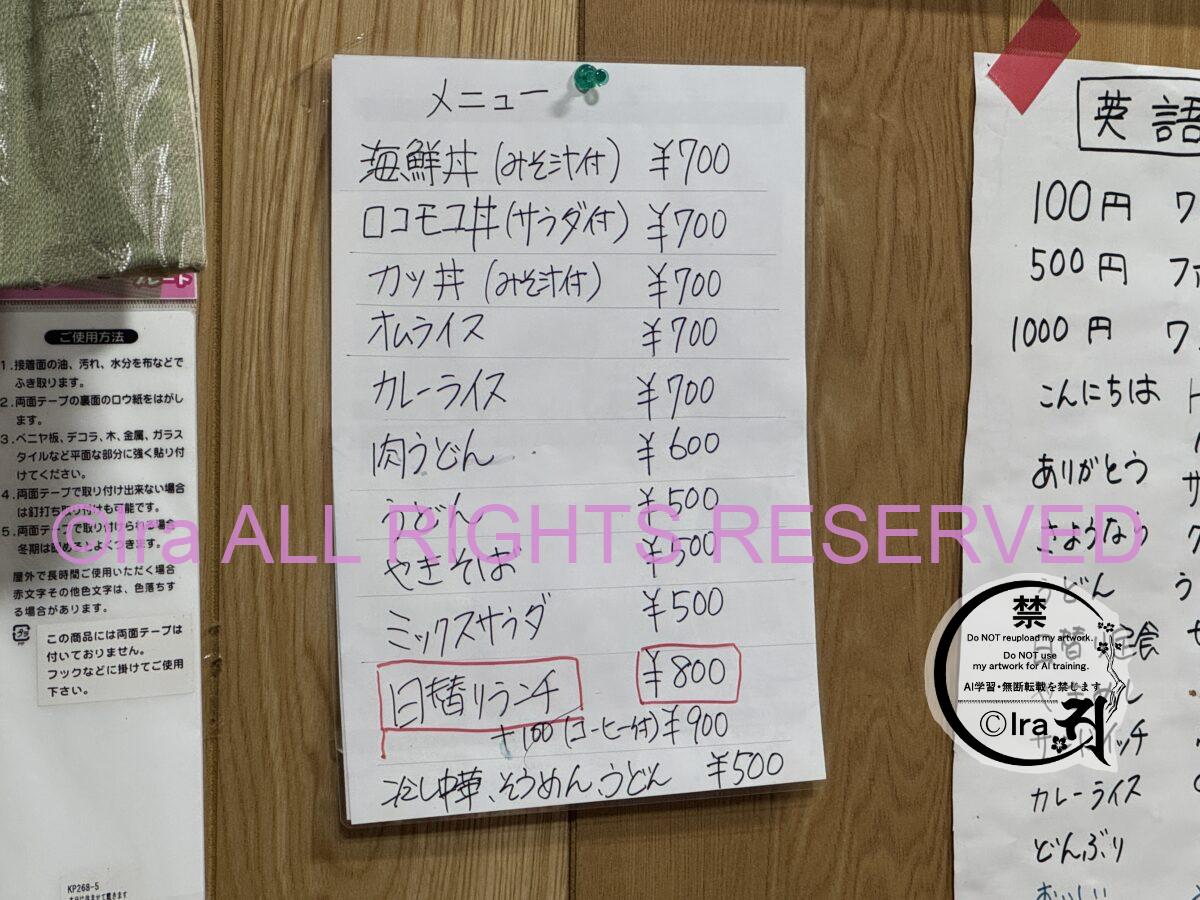 メニュー
海鮮丼(みそ汁付) ¥700
ロコモコ丼(サラダ付) ¥700
カツ丼(みそ汁付) ¥700
オムライス ¥700
カレーライス ¥700
肉うどん ¥600
うどん ¥500
やきそば ¥500
ミックスサラダ ¥500
日替りランチ ¥800
+100(コーヒー付)¥900
冷し中華、そうめん、うどん ¥500
プレート
ご使用方法
1.接着面の油、汚れ、水分を布などで
ふき取ります。
2.両面テープの裏面のロウ紙をはがし
ます。
3.ベニヤ板、デコラ、木、金属、ガラス
タイルなど平面な部分に強く貼り付
けてください。
4.両面テープで取り付け出来ない場合
は釘打ち取り付けも可能です。
5.両面テープで取り付けられる場合
冬期は
屋外で長時間ご使用いただく場合
赤文字その他色文字は、色落ちす
る場合があります。
この商品には両面テープは
付いておりません。
フックなどに掛けてご使用
下さい。
KP268-5
英語
100円 ワ
500円 ファ
1000円 ワ
こんにちは
ありがとう
さようなら
うどん
日替り定食
カレーライス
どんぶり
おいしい
©Ira ALL RIGHTS RESERVED
禁
Do NOT reupload my artwork.
Do NOT use
my artwork for AI training.
AI学習・無断転載を禁じます
©Ira